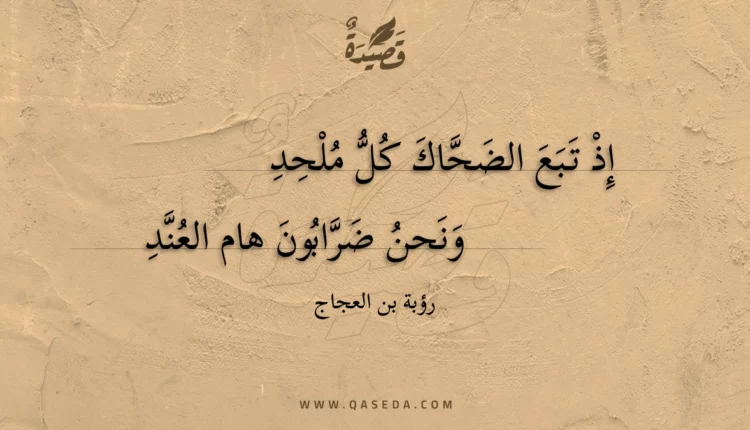 قَصِيدَةٌ
إِذْ تَبَعَ الضَحَّاكَ كُلُّ مُلْحِدِ
وَنَحنُ ضَرَّابُونَ هام العُنَّدِ
رؤبة بن العجاج
WWW.QASEDA.COM